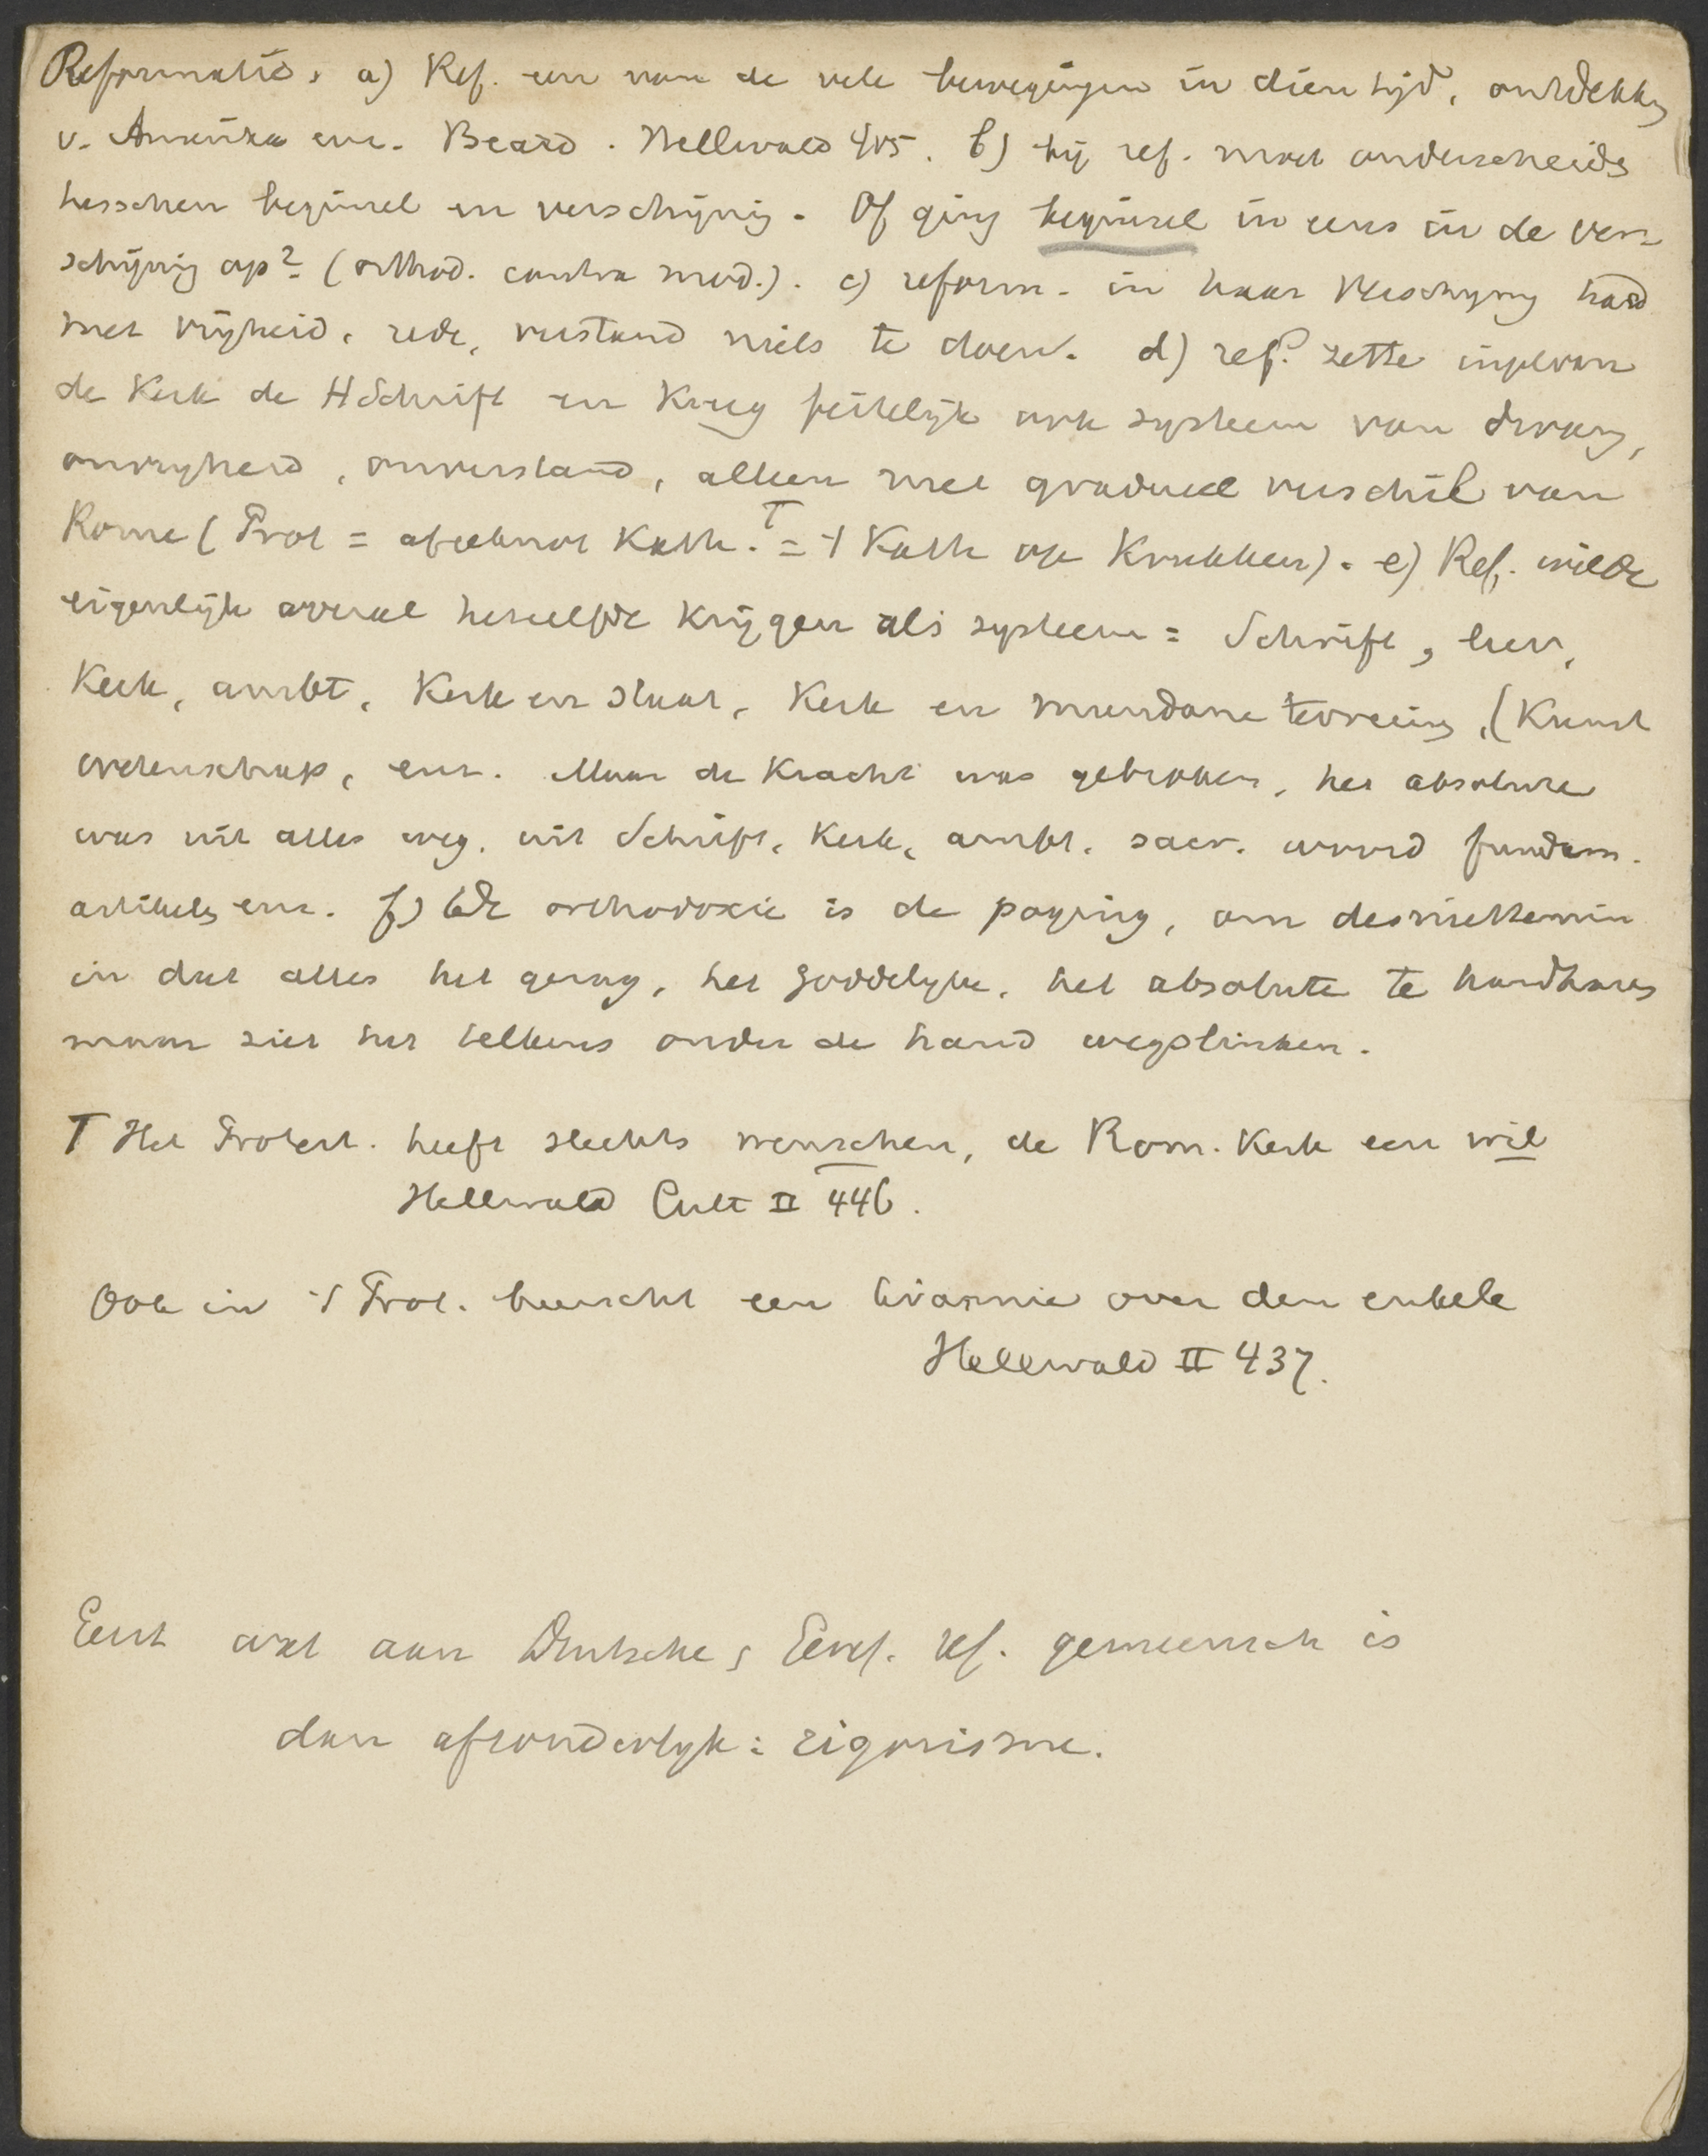 Reformatie. a) Ref. een van de vele bewegingen in dien tijd, ontdekking
v. Amerika enz. Beard. Hellwald 405. b) bij ref. moet onderscheiden
tusschen beginsel en verschijning. Of ging beginsel in eens in de ver-
schijning op? (orthod. contra mod.). c) reform. in haar verschyning had
met vrijheid, rede, verstand niets te doen. d) ref. zette inpl. van
de Kerk de HSchrift en kreeg feitelijk ook systeem van dwang,
onvryheid, onverstand, alleen met gradueel verschil van
Rome (Prot = afgeknot Kath. T = 't Kath op Krukken). e) Ref. wilde
eigenlijk overal hetzelfde krijgen als systeem = Schrift, leer,
Kerk, ambt, Kerk en staat, Kerk en mundane terrein, (Kunst
wetenschap, enz. Maar de Kracht was gebroken, het absolute
was uit alles weg, uit Schrift, Kerk, ambt, sacr. woord fundam.
artikelen enz. f) de orthodoxie is de poging, om desniettemin
in dat alles het gezag, het goddelyke, het absolute te handhaven
maar ziet het telkens onder de hand wegslinken.
T Het Protest. heeft slechts menschen, de Rom. Kerk een wil
Hellwald Cult II 446.
Ook in 't Prot. heerscht een tirannie over den enkele
Hellwald II 437.
Eerst wat aan Duitsche, ref. gemeensch is
dan afzonderlyk: rigorisme.